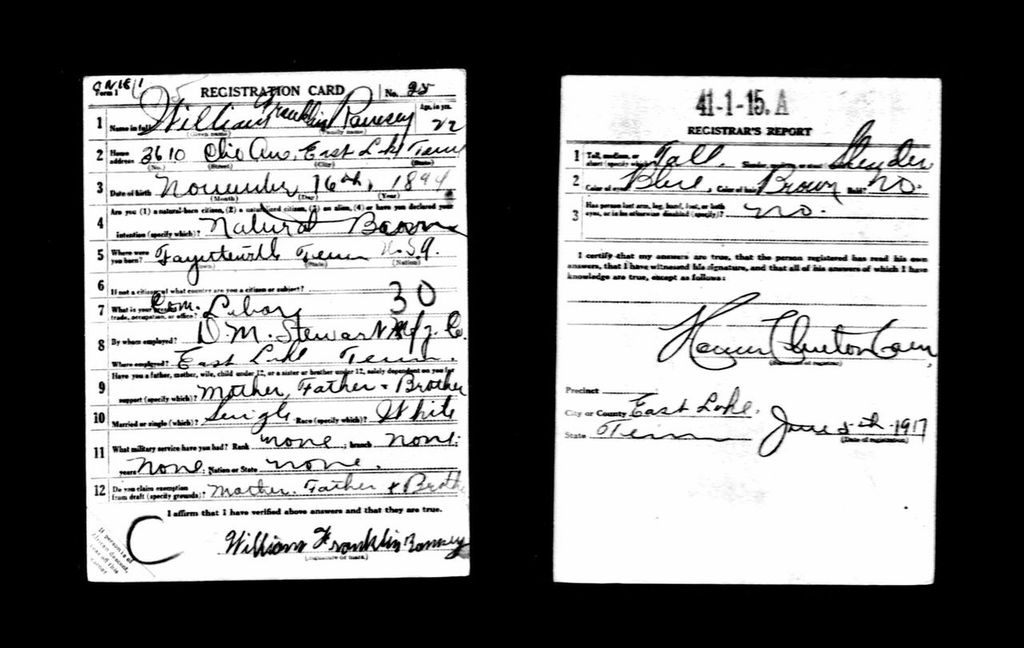 Form 1
REGISTRATION CARD No. 25
1 Name in full William Franklin Ramsey Age, in yrs. 22
(Given name) (Family name)
2 Home address 3610 Ohio Ave, East Lake Tenn
(No.) (Street) (City) (State)
3 Date of birth November 16th, 1894
(Month) (Day) (Year)
4 Are you (1) a natural-born citizen, (2) a naturalized citizen, (3) an alien, (4) or have you declared your
intention (specify which)? Natural Born
5 Where were you born? Fayetteville Tenn U.S.A.
(Town) (State) (Nation)
6 If not a citizen, of what country are you a citizen or subject?
7 What is your present trade, occupation, or office? Com. Labor 30
8 By whom employed? D. M. Stewart Mfg. Co.
Where employed? East Lake Tenn.
9 Have you a father, mother, wife, child under 12, or a sister or brother under 12, solely dependent on you for
support (specify which)? Mother, Father + Brother
10 Married or single (which)? Single Race (specify which)? White
11 What military service have you had? Rank none ; branch none ;
years none ; Nation or State none.
12 Do you claim exemption from draft (specify grounds)? Mother. Father + Broth
I affirm that I have verified above answers and that they are true.
William Franklin Ramsey
(Signature or mark)
If person is of African descent, tear off this corner
41-1-15. A
REGISTRAR'S REPORT
1 Tall, medium, or short (specify which)? Tall. Slender, medium, or stout (which)? Slender
2 Color of eyes? Blue. Color of hair? Brown Bald? No.
3 Has person lost arm, leg, hand, foot, or both eyes, or is he otherwise disabled (specify)? no.
I certify that my answers are true, that the person registered has read his own
answers, that I have witnessed his signature, and that all of his answers of which I have
knowledge are true, except as follows:
(Signature of registrar)
Precinct
City or County East Lake.
State Tenn June 5th-1917
(Date of registration)